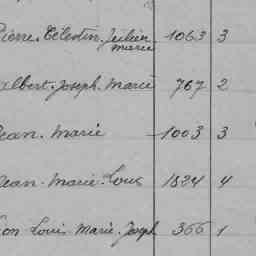 Pierre. Célestin. Julien 1063 3
marie
Albert. Joseph. Marie 767 2
Jean. Marie 1003 3
Jean. Marie. Louis 1824 4
Léon Louis Marie. Joseph 366 1